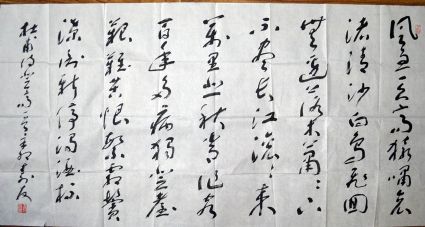 风急天高猿啸哀
渚清沙白鸟飞回
无边落木萧萧下
不尽长江滚滚来
万里悲秋常作客
百年多病独登台
艰难苦恨繁霜鬓
潦倒新停浊酒杯
杜甫诗登高